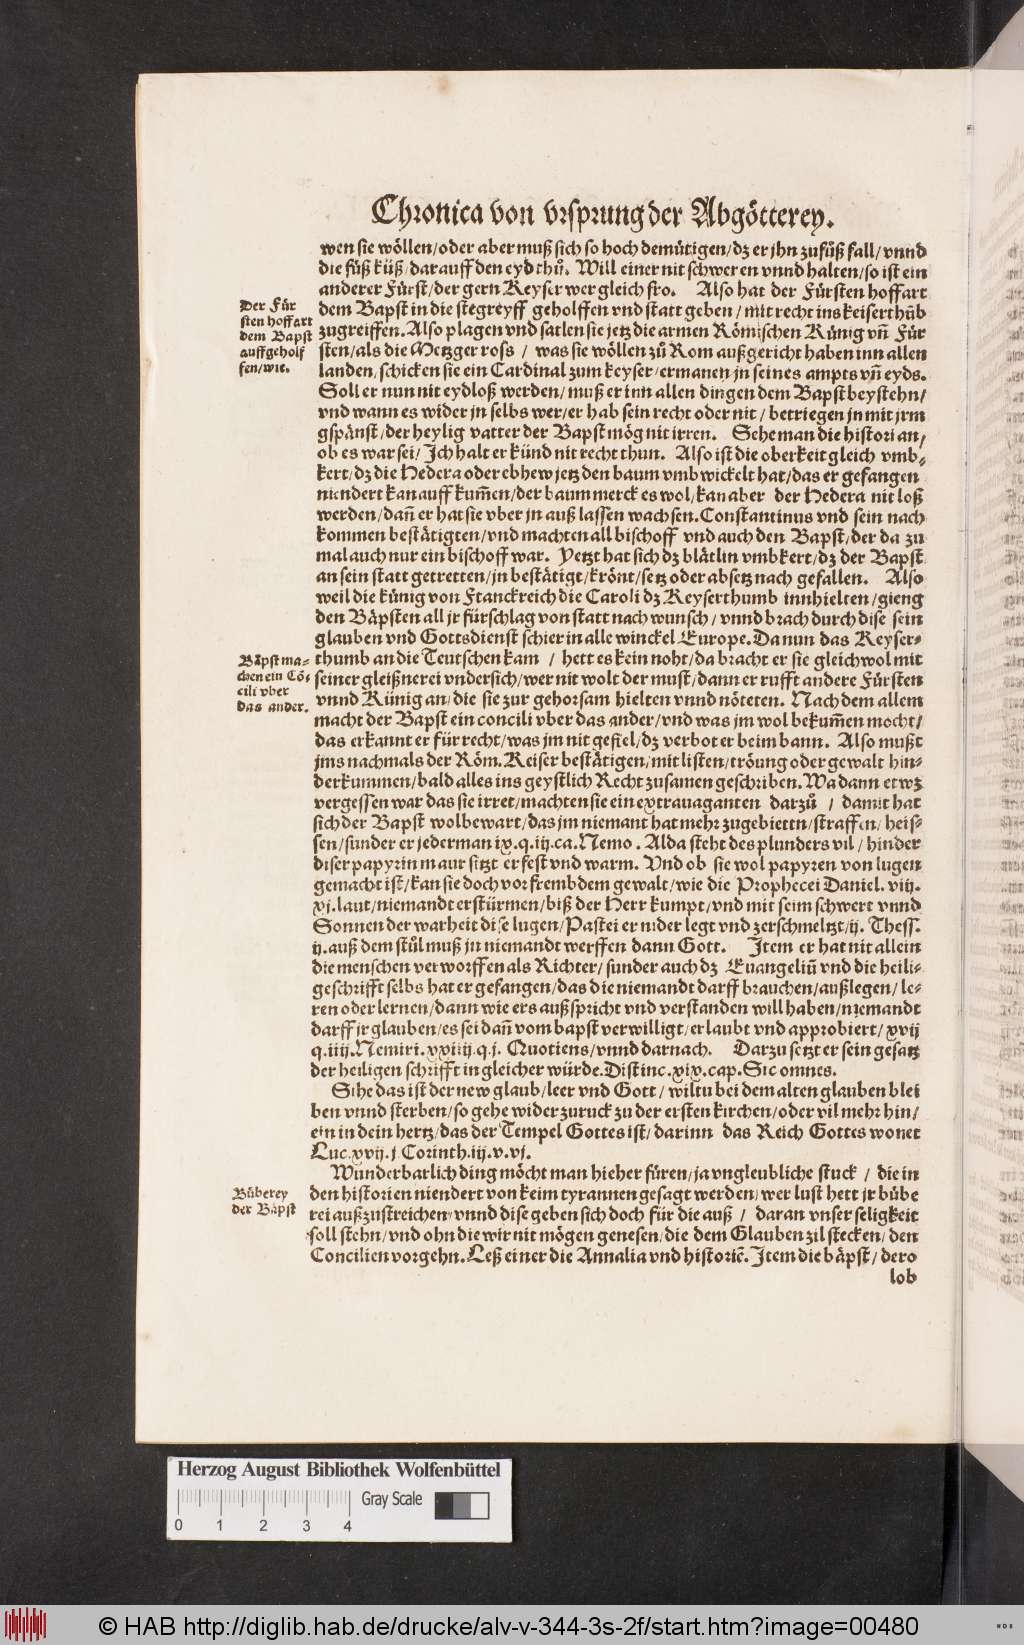 Chronica von vrsprung der Abgötterey.
wen sie wöllen/oder aber muß sich so hoch demütigen/dz er jhn zufüß fall/vnnd
die füß küß/darauff den eyd thů. Will einer nit schweren vnnd halten/so ist ein
anderer Fürst/der gern Keyser wer gleich fro. Also hat der Fürsten hoffart
Der Für
sten hoffart
dem Bapst
auffgeholf
fen/wie.
dem Bapst in die stegreyff geholffen vnd statt geben/mit recht ins keiserthůb
zugreiffen. Also plagen vnd satlen sie jetz die armen Römischen Künig vñ Für
sten/als die Metzger ross / was sie wöllen zů Rom außgericht haben inn allen
landen/schicken sie ein Cardinal zum keyser/ermanen jn seines ampts vñ eyds.
Soll er nun nit eydloß werden/muß er inn allen dingen dem Bapst beystehn/
vnd wann es wider jn selbs wer/er hab sein recht oder nit/betriegen jn mit jrm
gspänst/der heylig vatter der Bapst mög nit irren. Sehe man die histori an/
ob es war sei/Jch halt er künd nit recht thun. Also ist die oberkeit gleich vmb-
kert/dz die Hedera oder ebhew jetz den baum vmbwickelt hat/das er gefangen
niendert kan auff kum̃en/der baum merck es wol/kan aber der Hedera nit loß
werden/dañ er hat sie vber jn auß lassen wachsen. Constantinus vnd sein nach
kommen bestätigten/vnd machten all bischoff vnd auch den Bapst/der da zu
mal auch nur ein bischoff war. Yetzt hat sich dz blätlin vmbkert/dz der Bapst
an sein statt getretten/jn bestätigt/krönt/setz oder absetz nach gefallen. Also
weil die künig von Franckreich die Caroli dz Keyserthumb innhielten/gieng
den Bäpsten all jr fürschlag von statt nach wunsch/vnnd brach durch dise sein
glauben vnd Gottsdienst schier in alle winckel Europe. Da nun das Keyser-
Bäpst ma-
chen ein Cõ-
cili vber
das ander.
thumb an die Teutschen kam / hett es kein noht/da bracht er sie gleichwol mit
seiner gleißnerei vndersich/wer nit wolt der must/dann er rufft andere Fürsten
vnnd Künig an/die sie zur gehorsam hielten vnnd nöteten. Nach dem allem
macht der Bapst ein concili vber das ander/vnd was jm wol bekum̃en mocht/
das erkannt er für recht/was jm nit gefiel/dz verbot er beim bann. Also mußt
jms nachmals der Röm. Keiser bestätigen/mit listen/tröung oder gewalt hin-
derkummen/bald alles ins geystlich Recht zusamen geschriben. Wa dann etwz
vergessen war das sie irret/machten sie ein extrauaganten darzů / damit hat
sich der Bapst wol bewart/das jm niemant hat mehr zugebiettn/straffen/heis-
sen/sunder er jederman ix.q.iij.ca.Nemo. Alda steht des plunders vil/hinder
diser papyrin maur sitzt er fest vnd warm. Vnd ob sie wol papyren von lugen
gemacht ist/kan sie doch vor frembdem gewalt/wie die Prophecei Daniel. viij.
xj. laut/niemandt erstürmen/biß der Herr kumpt/vnd mit seim schwert vnnd
Sonnen der warheit dise lugen/Pastei ernider legt vnd zerschmeltzt/ij. Thess.
ij. auß dem stůl muß jn niemandt werffen dann Gott. Jtem er hat nit allein
die menschen verworffen als Richter/sunder auch dz Euangeliũ vnd die heili-
geschrifft selbs hat er gefangen/das die niemandt darff brauchen/außlegen/le-
ren oder lernen/dann wie ers außspricht vnd verstanden will haben/niemandt
darff jr glauben/es sei dañ vom bapst verwilligt/erlaubt vnd approbiert/xvij
q.iiij.Nemiri.xxiiij.q.j. Quotiens/vnnd darnach. Darzu setzt er sein gesatz
der heiligen schrifft in gleicher würde.Distinc.xix.cap.Sic omnes.
Sihe das ist der new glaub/leer vnd Gott/wiltu bei dem alten glauben blei
ben vnnd sterben/so gehe wider zuruck zu der ersten kirchen/oder vil mehr hin/
ein in dein hertz/das der Tempel Gottes ist/darinn das Reich Gottes wonet
Luc.xvij.j Corinth.iij.v.vj.
Wunderbarlich ding möcht man hieher füren/ja vngleubliche stuck / die in
Büberey
der Bäpst
den historien niendert von keim tyrannen gesagt werden/wer lust hett jr bübe
rei außzustreichen/vnnd dise geben sich doch für die auß / daran vnser seligkeit
soll stehn/vnd ohn die wir nit mögen genesen/die dem Glauben zil stecken/den
Concilien vorgehn. Leß einer die Annalia vnd historiẽ. Jtem die bäpst/dero
lob
Herzog August Bibliothek Wolfenbüttel
Gray Scale
0 1 2 3 4
© HAB http://diglib.hab.de/drucke/alv-v-344-3s-2f/start.htm?image=00480